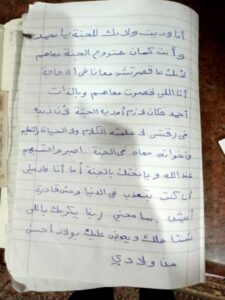 أنا وديت ولادك للجنة يا محمد
وأنت كمان هتروح الجنة معاهم
لأنك ما قصرتش معانا في أي حاجة
أنا اللي قصرت معاهم وبالذات
أحمد فكان لازم أوديه الجنة لأن ذنبه
في رقبتي لا علمته الكلام ولا الحياة ولا التعليم
وأخواته معاه في الجنة اصبر واحتسبهم
عند الله ويا بختك بالجنة أما أنا فادعيلي
أنا كنت بتعذب في الدنيا ومش قادرة
أعيش سامحني ربنا يكرمك باللي
تستاهلك ويعوض عليك بولاد أحسن
من ولادي